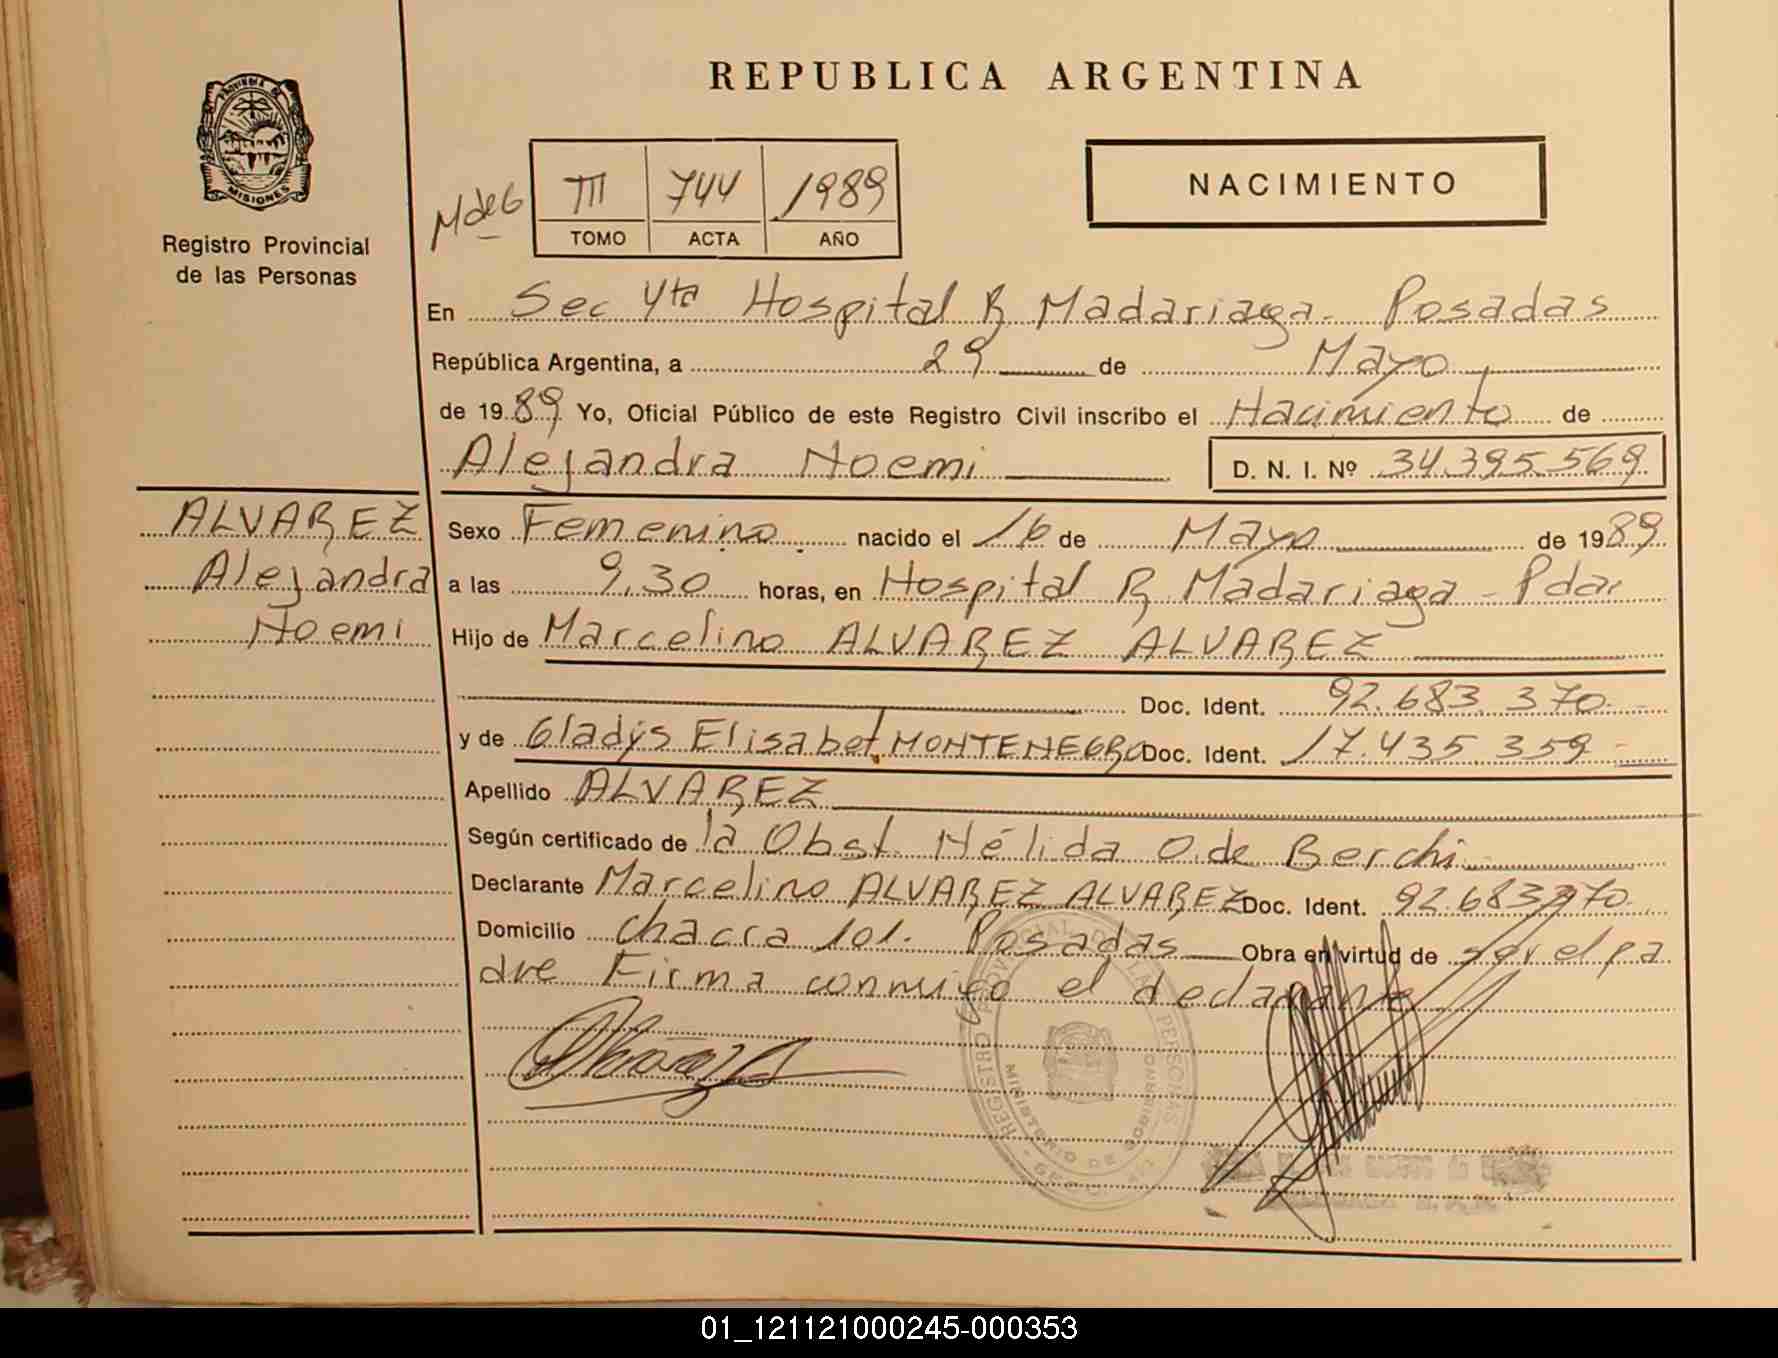 REPUBLICA ARGENTINA
PROVINCIA DE
MISIONES
Registro Provincial
de las Personas
M de G
III 744 1989
TOMO ACTA AÑO
NACIMIENTO
En Sec 4ta Hospital R Madariaga - Posadas
República Argentina, a 29 de Mayo
de 1989 Yo, Oficial Público de este Registro Civil inscribo el Nacimiento de
Alejandra Noemi D. N. I. Nº 34.395.569
ALVAREZ
Alejandra
Noemi
Sexo Femenino nacido el 16 de Mayo de 1989
a las 9,30 horas, en Hospital R Madariaga - Pdas
Hijo de Marcelino ALVAREZ ALVAREZ
Doc. Ident. 92.683.370
y de Gladys Elisabet MONTENEGRO Doc. Ident. 17.435.359
Apellido ALVAREZ
Según certificado de la Obst. Nélida O. de Berchi
Declarante Marcelino ALVAREZ ALVAREZ Doc. Ident. 92.683370
Domicilio chacra 101. Posadas Obra en virtud de ser el pa
dre Firma conmigo el declarante
REGISTRO PROVINCIAL DE LAS PERSONAS
MINISTERIO DE GOBIERNO
01_121121000245-000353